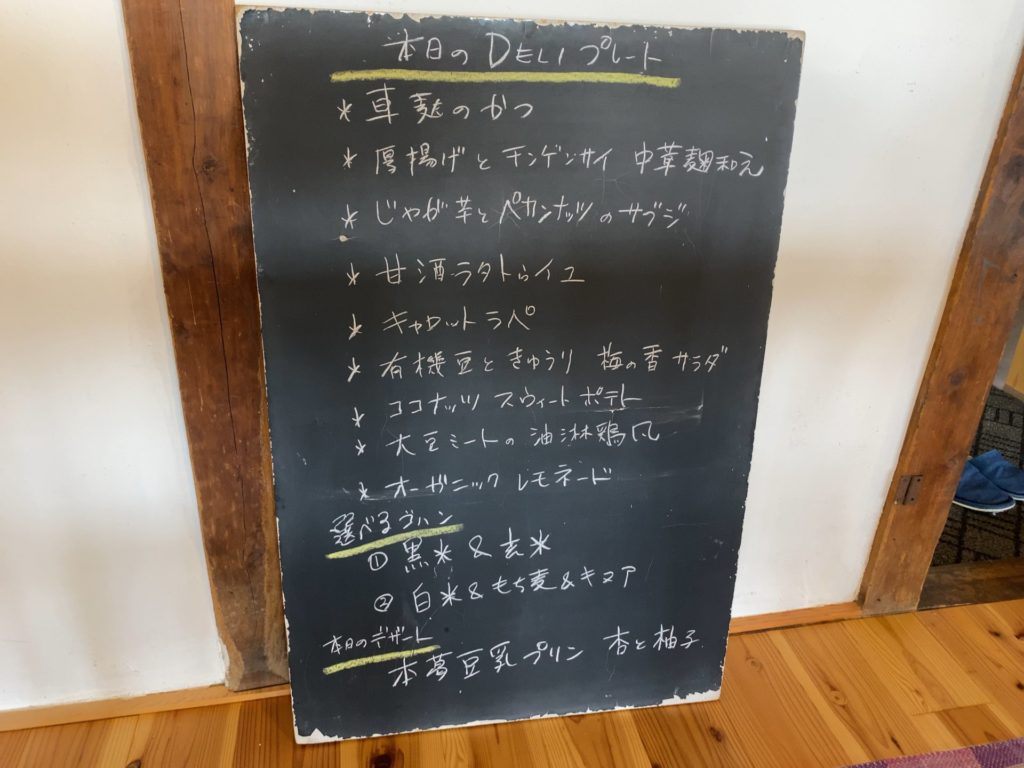 本日のDeli プレート
* 車麩のかつ
* 厚揚げとチンゲンサイ 中華麹和え
* じゃが芋とペカンナッツのサブジ
* 甘酒ラタトゥイユ
* キャロットラペ
* 有機豆ときゅうり 梅の香サラダ
* ココナッツ スウィートポテト
* 大豆ミートの油淋鶏風
* オーガニック レモネード
選べるゴハン
① 黒米 & 玄米
② 白米&もち麦&キヌア
本日のデザート
本葛豆乳プリン 杏と柚子